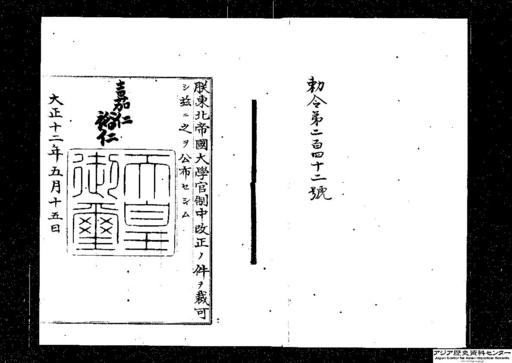 勅令第二百四十二號
朕東北帝國大學官制中改正ノ件ヲ裁可
シ茲ニ之ヲ公布セシム
嘉仁
裕仁
天皇御璽
大正十二年五月十五日
アジア歴史資料センター
Japan Center for Asian Historical Records